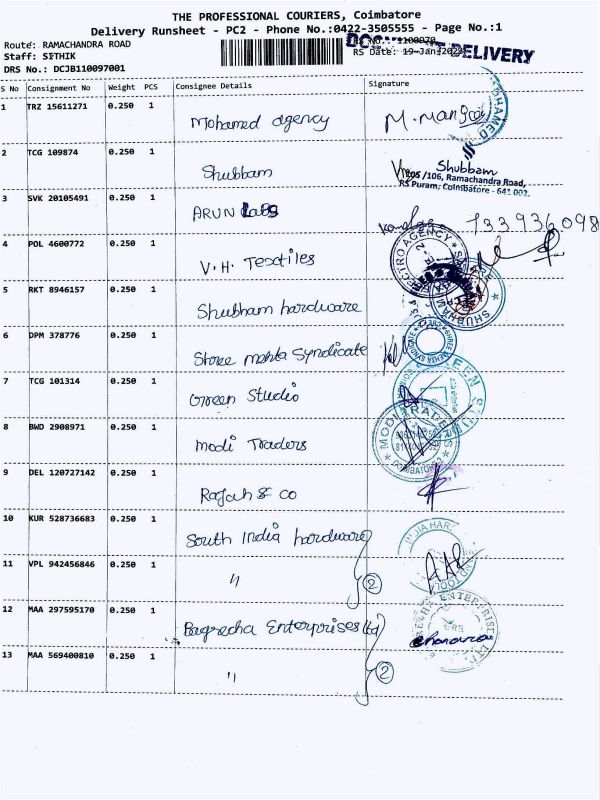 THE PROFESSIONAL COURIERS, Coimbatore
Delivery Runsheet - PC2 - Phone No.:0422-3505555 - Page No.:1
Route: RAMACHANDRA ROAD
DELIVERY
Staff: SETHIK
RS Date: 19-Jan-
DRS No.: DCJB110097001
S No Consignment No Weight PCS Consignee Details Signature
1 TRZ 15611271 0.250 1 Mohamed agency M. manga
2 TCG 109874 0.250 1 Shubbam Shubbam
205 /106, Ramachandra Road,
RS Puram, Coimbatore - 641 002.
3 SVK 20105491 0.250 1 ARUN Labs 733936098
4 POL 4600772 0.250 1 V.H. Textiles
5 RKT 8946157 0.250 1 Shubham hardware SHUBHAM
6 DPM 378776 0.250 1 Shree mehta Syndicate
7 TCG 101314 0.250 1 Green Studio
8 BWD 2908971 0.250 1 Modi Traders MODI TRADERS
COIMBATORE
9 DEL 120727142 0.250 1 Rajah & co
10 KUR 528736683 0.250 1 South India hardware
11 VPL 942456846 0.250 1 " 2
12 MAA 297595170 0.250 1 Bagrecha Enterprises Ltd
13 MAA 569400810 0.250 1 " 2